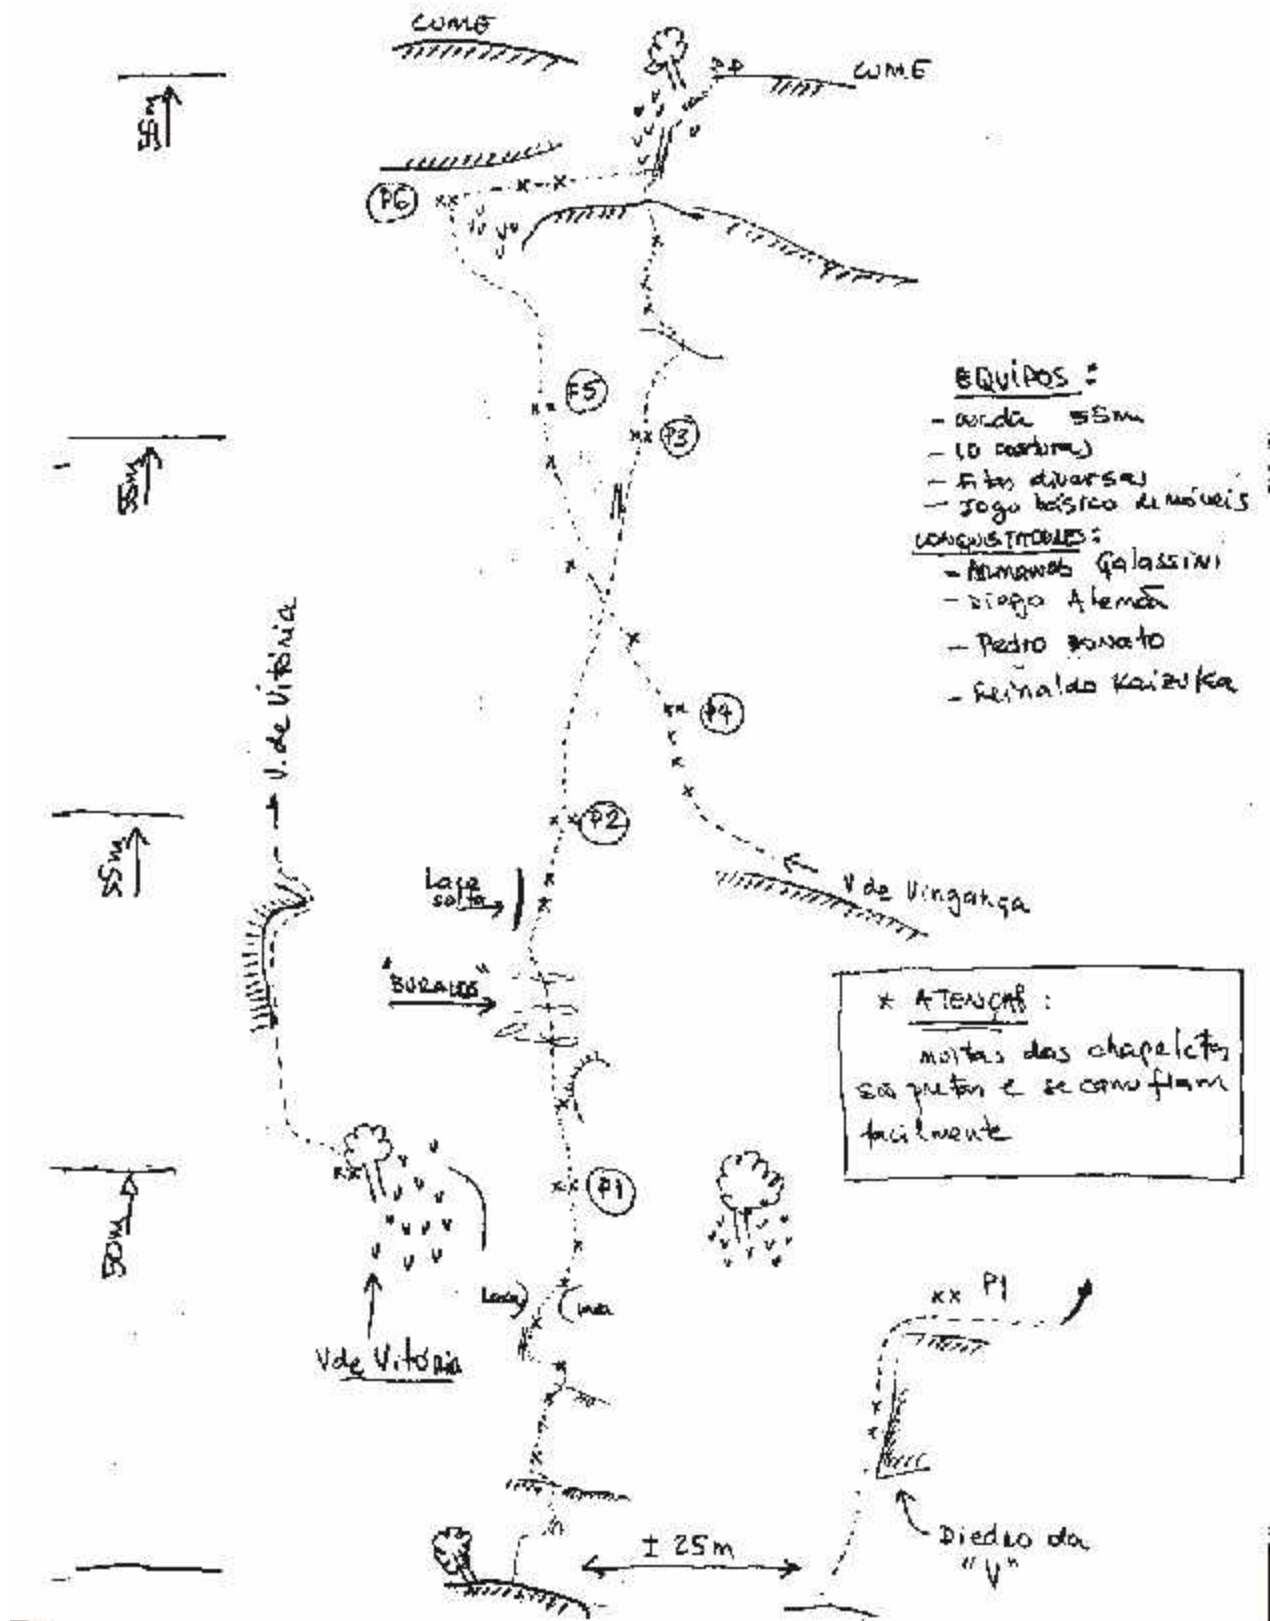 CUME
CUME
55m
P6
P5
P3
55m
EQUIPOS:
- corda 55m
- 10 costuras
- Fitas diversas
- Jogo básico de móveis
CONQUISTADORES:
- Armando Galassini
- Diego Alemão
- Pedro Donato
- Reinaldo Kaizuka
V. de Vitória
P4
P2
55m
Laca
solta
V de Vingança
"BURACOS"
* ATENÇÃO:
muitas das chapeletas
são pretas e se camuflam
facilmente
P1
50m
Laca
V de Vitória
xx P1
± 25m
Diedro da
"V"